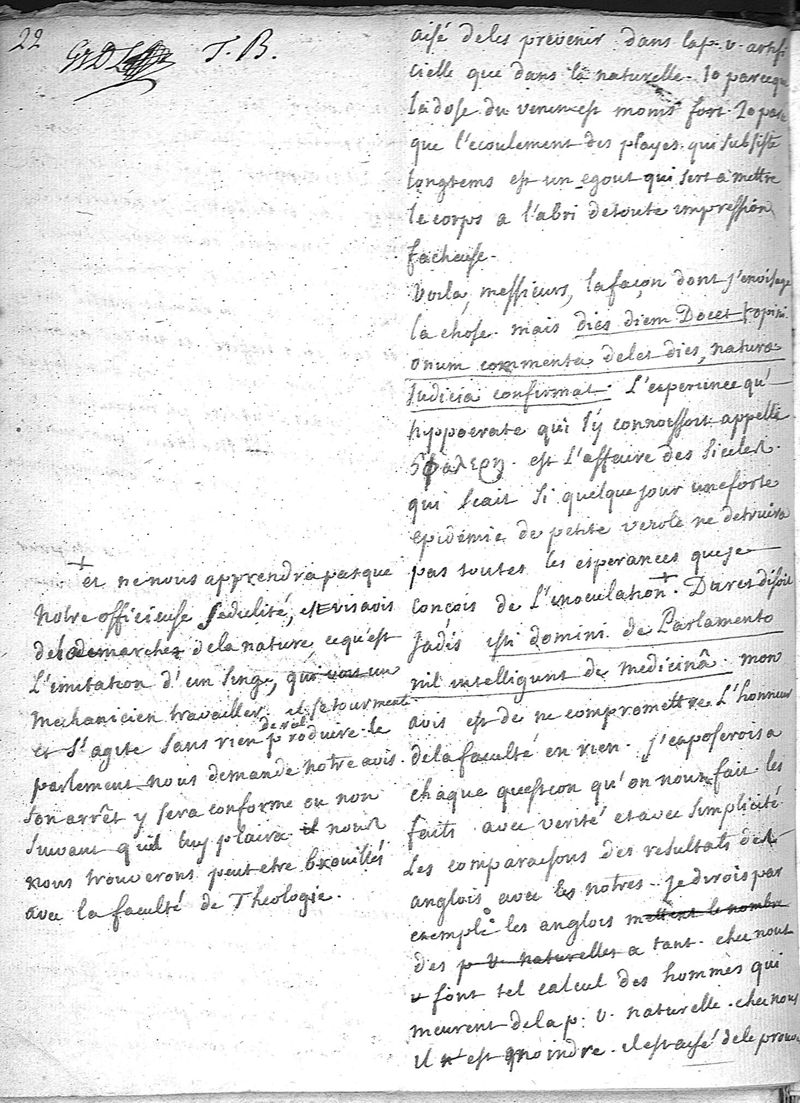 22
T. B.
aisé de les prevenir dans la p. v. artifi
cielle que dans la naturelle. 1o parceque
la dose du venin est moins fort 2o par
que l'ecoulement des playes qui subsiste
longtems est un egout qui sert a mettre
le corps a l'abri de toute impression
facheuse.
Voila, messieurs, la façon dont j'envisage
la chose. mais dies diem Docet, opini
onum commenta delet dies, naturæ
Judicia confirmat. L'esperience qu'
hyppocrate qui s'y connoissoit appelle
σφαλερη. est l'affaire des siecles.
qui scait si quelque jour une forte
epidémie de petite verole ne detruira
pas toutes les esperances que je
conçois de l'inoculation +. Duret disoit
Jadis isti domini de Parlamento
nil intelligunt de medicinâ. mon
avis est de ne compromettre l'honneur
de la faculté en rien. j'exposerois a
chaque question qu'on nous fait les
faits avec verité et avec simplicité
les comparaisons des resultats des
anglois avec les notres. je dirois par
exemple les anglois mettent le nombre
des p v. naturelles a tant. chez nous
font tel calcul des hommes qui
meurent de la p. v. naturelle. chez nous
il est moindre. il est aisé de le prouv
+ et ne nous apprendra pas que
notre officieuse sedulité, est vis avis
de la demarche de la nature, ce qu'est
l'imitation d'un singe, qui voit un
mechanicien travailler. il se tourmente
et s'agite sans rien produire. le
de réel
parlement nous demande notre avis.
son arrêt y sera conforme ou non
suivant qu'il luy plaira. il nous
nous trouverons peut etre brouillés
avec la faculté de Theologie.